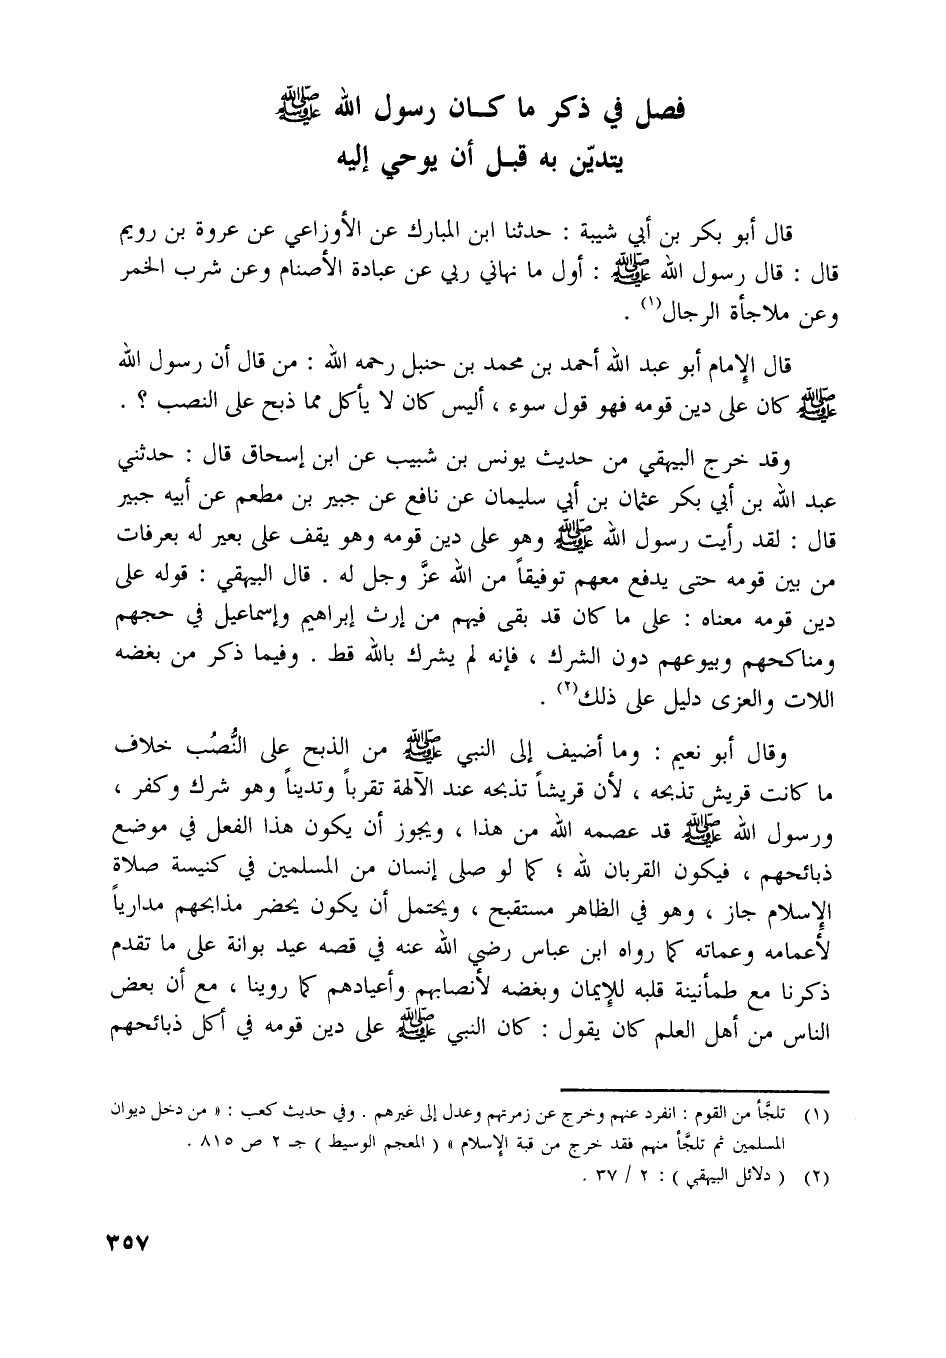 فصل في ذكر ما كان رسول الله ﷺ
يتديّن به قبل أن يوحي إليه
قال أبو بكر بن أبي شيبة : حدثنا ابن المبارك عن الأوزاعي عن عروة بن رويم
قال : قال رسول الله ﷺ : أول ما نهاني ربي عن عبادة الأصنام وعن شرب الخمر
وعن ملاجأة الرجال(١) .
قال الإمام أبو عبد الله أحمد بن محمد بن حنبل رحمه الله : من قال أن رسول الله
ﷺ كان على دين قومه فهو قول سوء ، أليس كان لا يأكل مما ذبح على النصب ؟ .
وقد خرج البيهقي من حديث يونس بن شبيب عن ابن إسحاق قال : حدثني
عبد الله بن أبي بكر عثمان بن أبي سليمان عن نافع عن جبير بن مطعم عن أبيه جبير
قال : لقد رأيت رسول الله ﷺ وهو على دين قومه وهو يقف على بعير له بعرفات
من بين قومه حتى يدفع معهم توفيقاً من الله عزَّ وجل له . قال البيهقي : قوله على
دين قومه معناه : على ما كان قد بقى فيهم من إرث إبراهيم وإسماعيل في حجهم
ومناكحهم وبيوعهم دون الشرك ، فإنه لم يشرك بالله قط . وفيما ذكر من بغضه
اللات والعزى دليل على ذلك(٢) .
وقال أبو نعيم : وما أضيف إلى النبي ﷺ من الذبح على النُّصُب خلاف
ما كانت قريش تذبحه ، لأن قريشاً تذبحه عند الآلهة تقرباً وتديناً وهو شرك وكفر ،
ورسول الله ﷺ قد عصمه الله من هذا ، ويجوز أن يكون هذا الفعل في موضع
ذبائحهم ، فيكون القربان لله ؛ كما لو صلى إنسان من المسلمين في كنيسة صلاة
الإسلام جاز ، وهو في الظاهر مستقبح ، ويحتمل أن يكون يحضر مذابحهم مدارياً
لأعمامه وعماته كما رواه ابن عباس رضي الله عنه في قصه عيد بوانة على ما تقدم
ذكرنا مع طمأنينة قلبه للإيمان وبغضه لأنصابهم وأعيادهم كما روينا ، مع أن بعض
الناس من أهل العلم كان يقول : كان النبي ﷺ على دين قومه في أكل ذبائحهم
(١) تلجَّأ من القوم : انفرد عنهم وخرج عن زمرتهم وعدل إلى غيرهم . وفي حديث كعب : « من دخل ديوان
المسلمين ثم تلجَّأ منهم فقد خرج من قبة الإسلام » ( المعجم الوسيط ) جـ ٢ ص ٨١٥ .
(٢) ( دلائل البيهقي ) : ٢ / ٣٧ .
٣٥٧